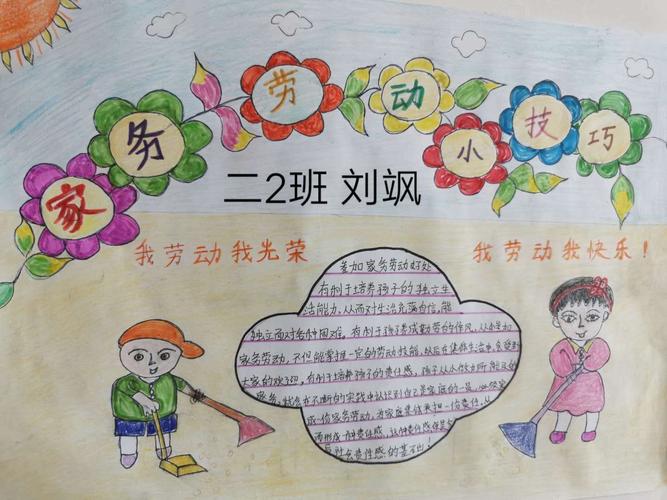 家务劳动小技巧
二2班 刘飒
我劳动我光荣
我劳动我快乐！
参加家务劳动好处
有利于培养孩子的独立生
活能力，从而对生活充满自信，能
独立面对各种困难。有利于孩子养成勤劳的作风，从小参加
家务劳动，不但能掌握一定的劳动技能，以后在集体生活中，会受到
大家的欢迎，有利于培养孩子的责任感。孩子从小做力所能及的
家务，就会在不断的实践中认识到自己是家庭的一员，
成一份家务劳动，为家庭
而形成一种责任感，这种责任感
社会责任感的基础！